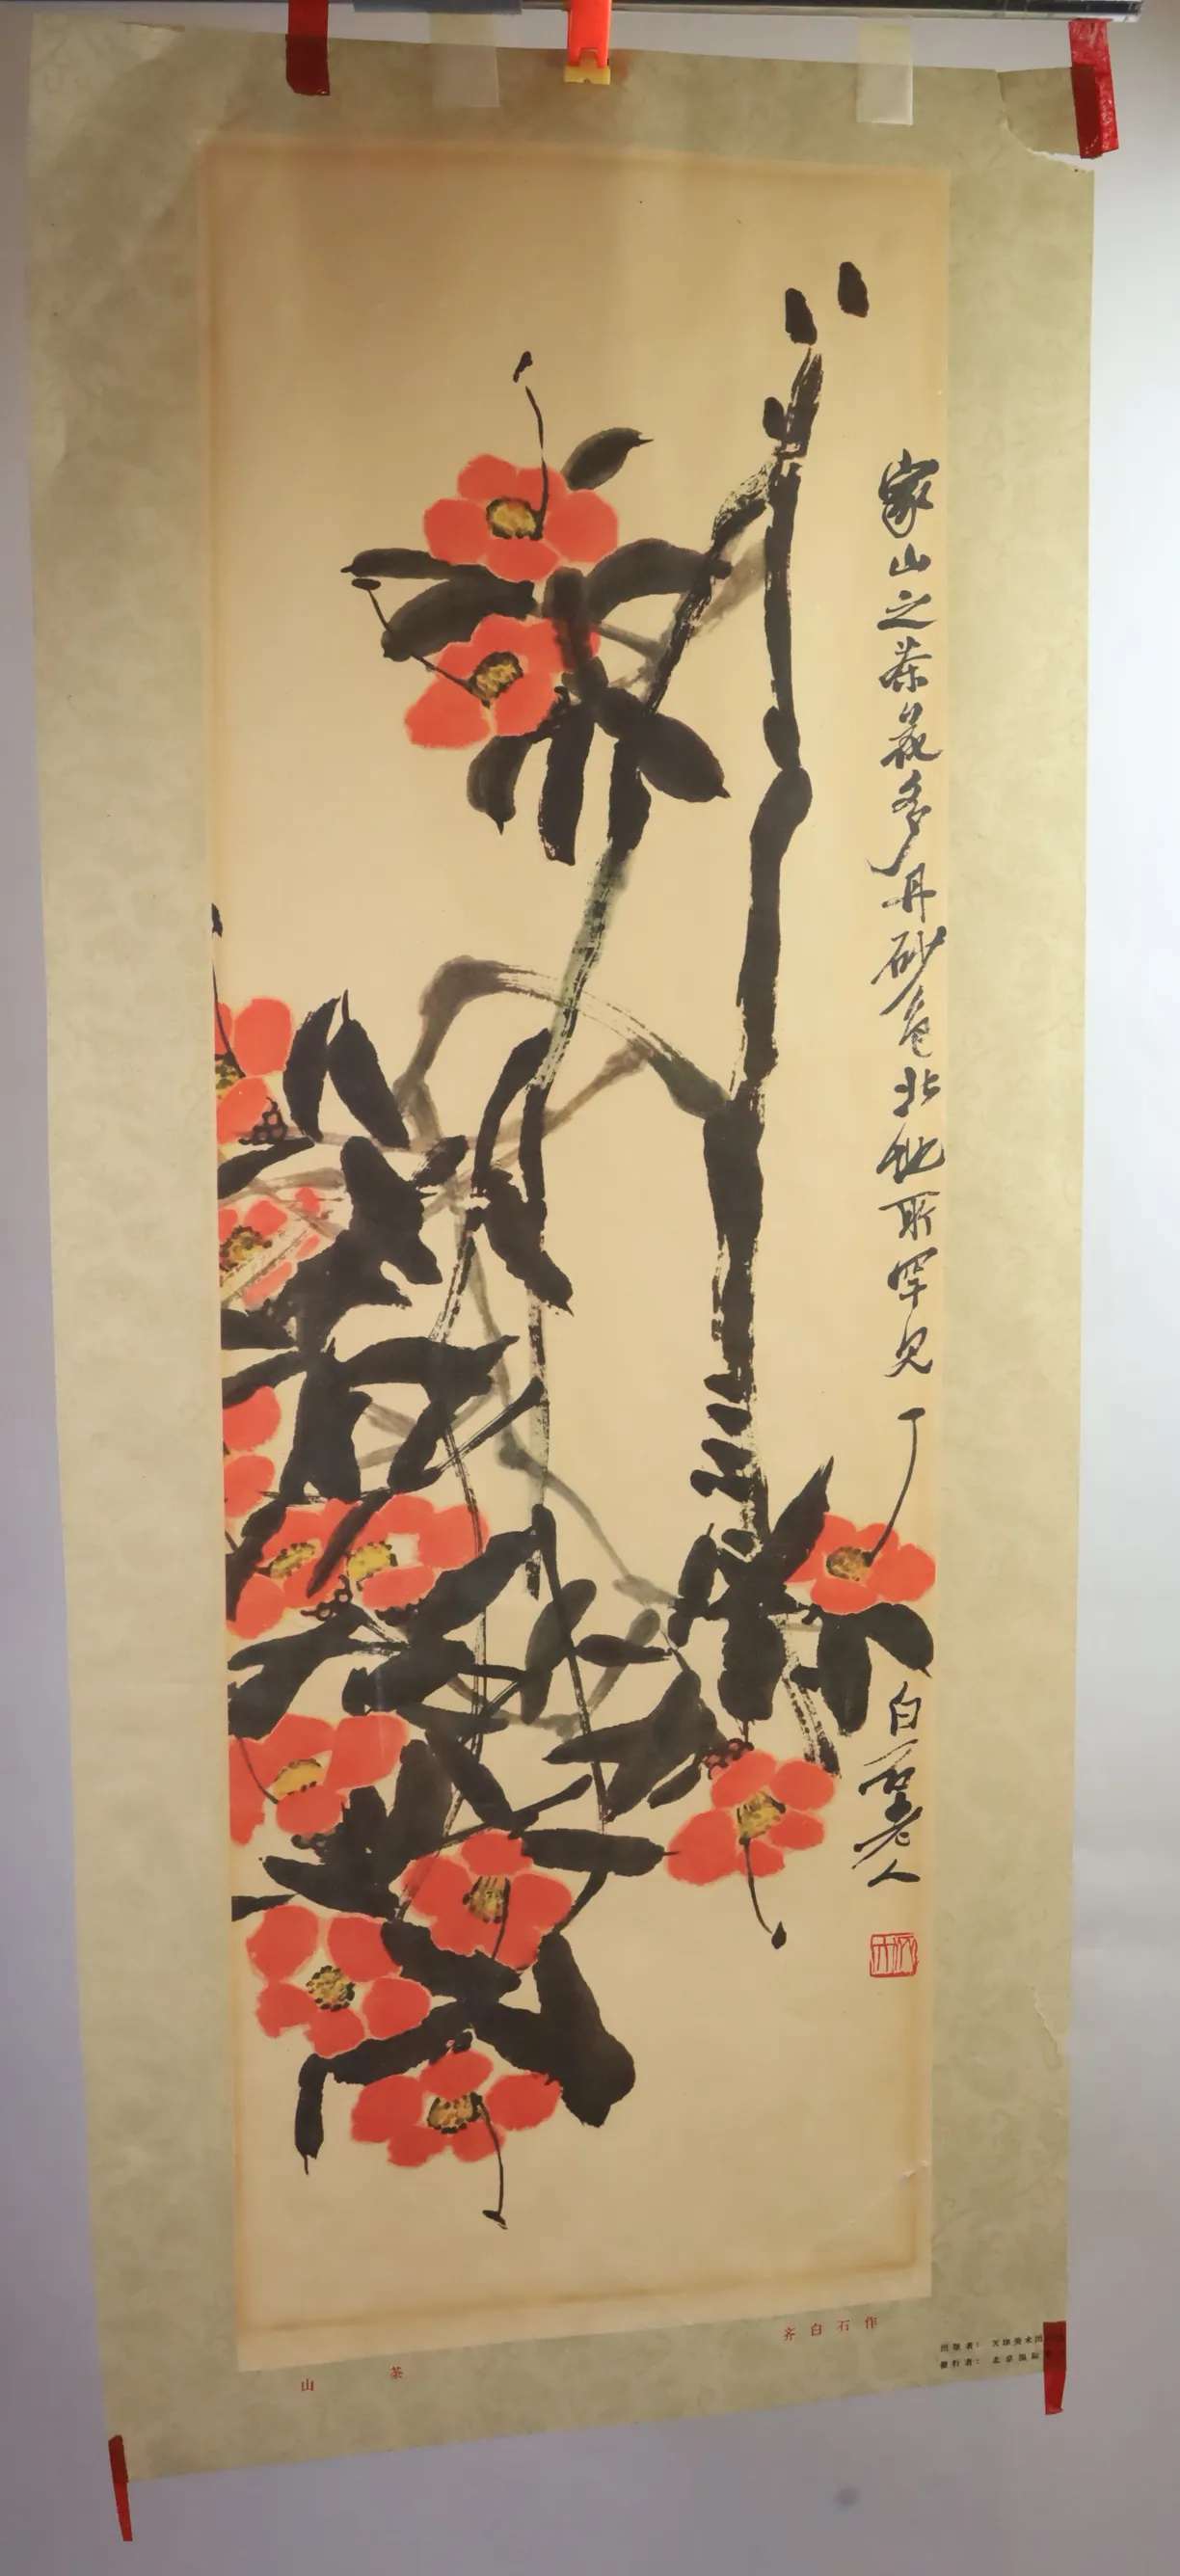 家山之茶花多丹砂色北地所罕见
白石老人
山茶
齐白石作
出版者：天津美术出
發行者：北京国际